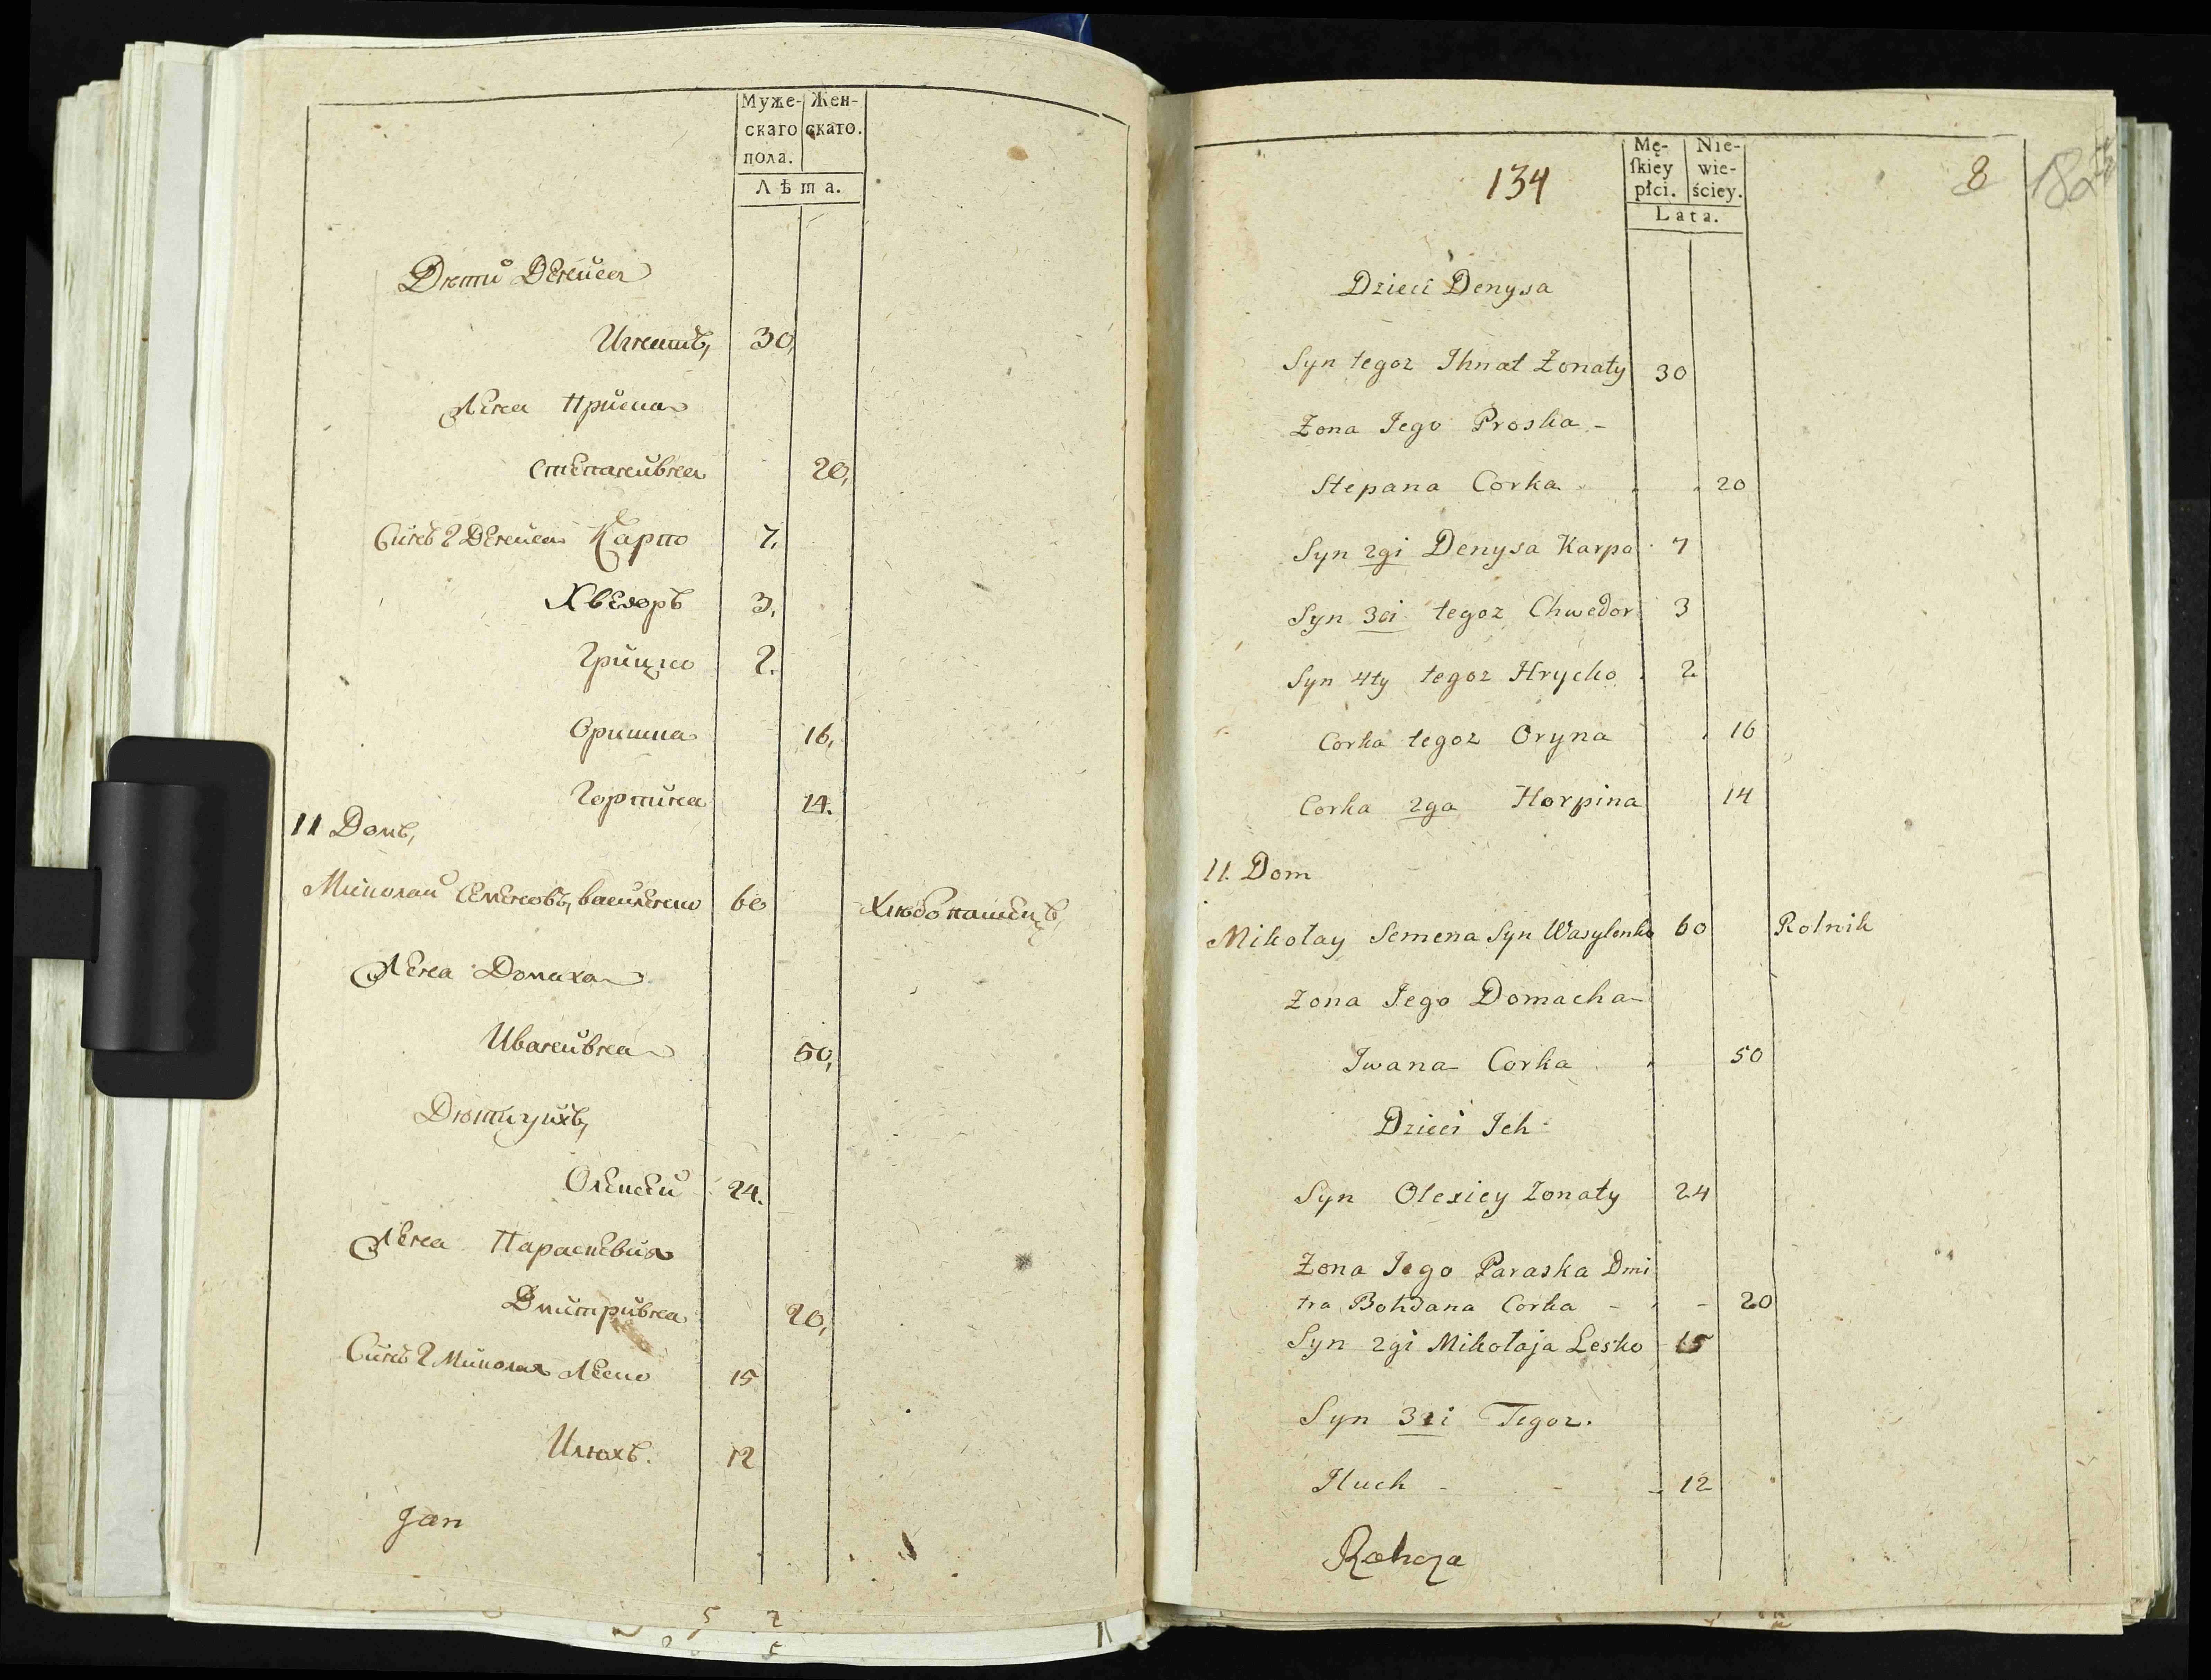 Муже-
скаго
пола.
Жен-
скаго.
Лѣта.
Дѣти Дениса
Игнатъ, 30,
Жена Приска
Степанивна 20,
Синъ 2 Дениса Карпо 7,
Хведоръ 3,
Грицко 2.
Оришка 16,
Горпина 14.
11 Домъ,
Миколай Семеновъ, василенко 60 Хлѣбопашецъ,
Жена Домаха
Иванивна 50,
Дѣти ихъ,
Олексей 24.
Жена Параскевия
Дмитривна 20,
Синъ 2 Миколая Леско 15
Илюхъ. 12
Jan
134
Mę-
skiey
płci.
Nie-
wie-
ściey.
Lata.
8
Dzieci Denysa
Syn tegoz Ihnat Żonaty 30
Żona Jego Proska -
Stepana Corka 20
Syn 2gi Denysa Karpo 7
Syn 3ci tegoz Chwedor 3
Syn 4ty tegoz Hrycko 2
Corka tegoz Oryna 16
Corka 2ga Horpina 14
11. Dom
Mikołay Semena Syn Wasylenko 60 Rolnik
Zona Jego Domacha
Iwana Corka 50
Dzieci Ich
Syn Olexiey Zonaty 24
Żona Jego Paraska Dmi
tra Bohdana Corka - - 20
Syn 2gi Mikołaja Lesko 15
Syn 3ci Tegoz.
Iluch - - - 12